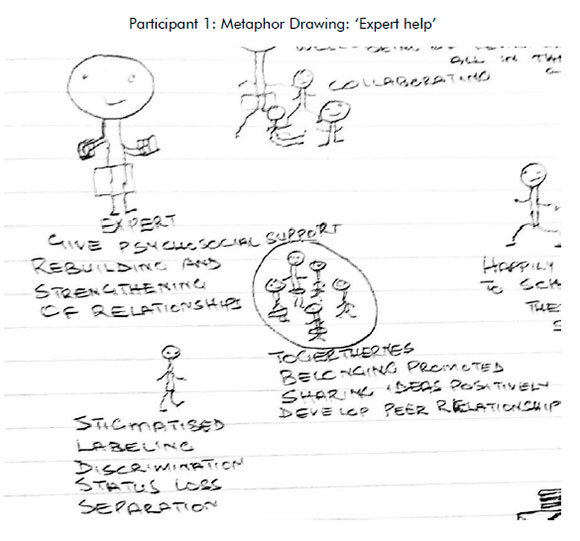 Participant 1: Metaphor Drawing: 'Expert help'
ALL IN TH
COLLABORATING
EXPERT
GIVE PSYCHOSOCIAL SUPPORT
REBUILDING AND
STRENGTHENING
OF RELATIONSHIPS
HAPPILY
TO SCH
THE
S
TOGERTHERNES
BELONGING PROMOTED
SHARING IDEAS POSITIVELY
DEVELOP PEER RELATIONSHIP
STIGMATISED
LABELING
DISCRIMINATION
STATUS LOSS
SEPARATION